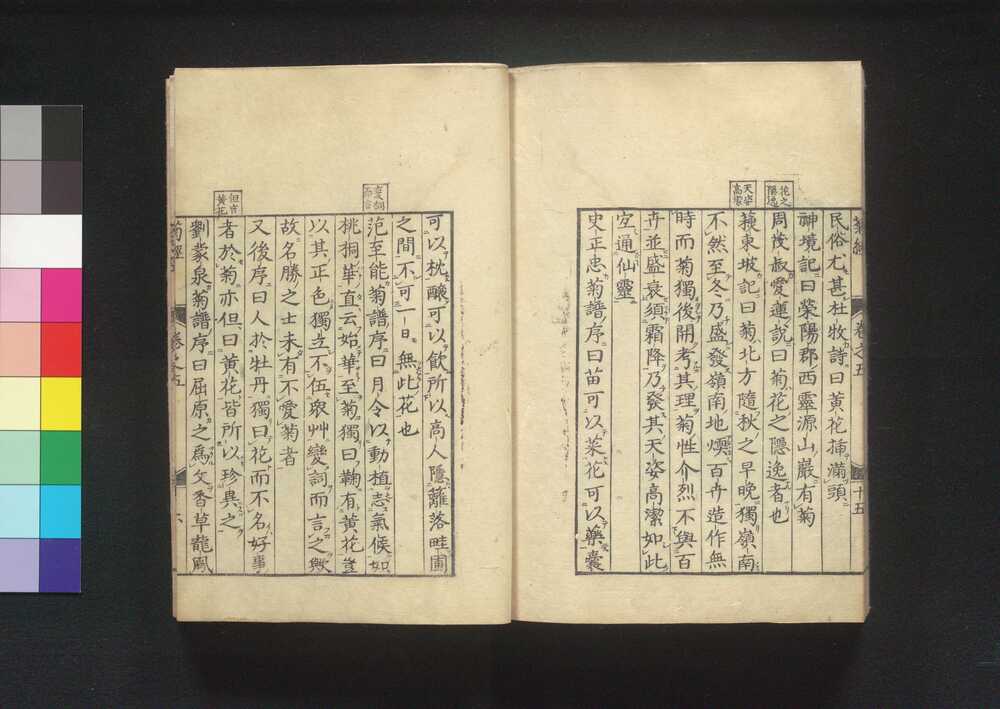 菊經
卷之五
十五
花之
隱逸
天姿
高潔
民俗尤甚杜牧詩曰黃花揷滿頭
神境記曰滎陽郡西靈源山巖有菊
周茂叔愛蓮說曰菊花之隱逸者也
東坡記曰菊北方隨秋之早晚獨嶺南
不然至冬乃盛發嶺南地煗百卉造作無
時而菊獨後開考其理菊性介烈不與百
卉並盛衰須霜降乃發其天姿高潔如此
空通仙靈
史正忠菊譜序曰苗可以菜花可以藥囊
變詞
而言
但言
黃花
可以枕釀可以飲所以高人隱籬落畦圃
之間不可一日無此花也
范至能菊譜序曰月令以動植志氣候如
桃桐華直云始華至菊獨曰鞠有黃花豈
以其正色獨立不伍衆艸變詞而言之歟
故名勝之士未有不愛菊者
又後序曰人於牡丹獨曰花而不名好事
者於菊亦但曰黃花皆所以珍異之
劉蒙泉菊譜序曰屈原之爲文香草龍鳳
菊經
卷之五